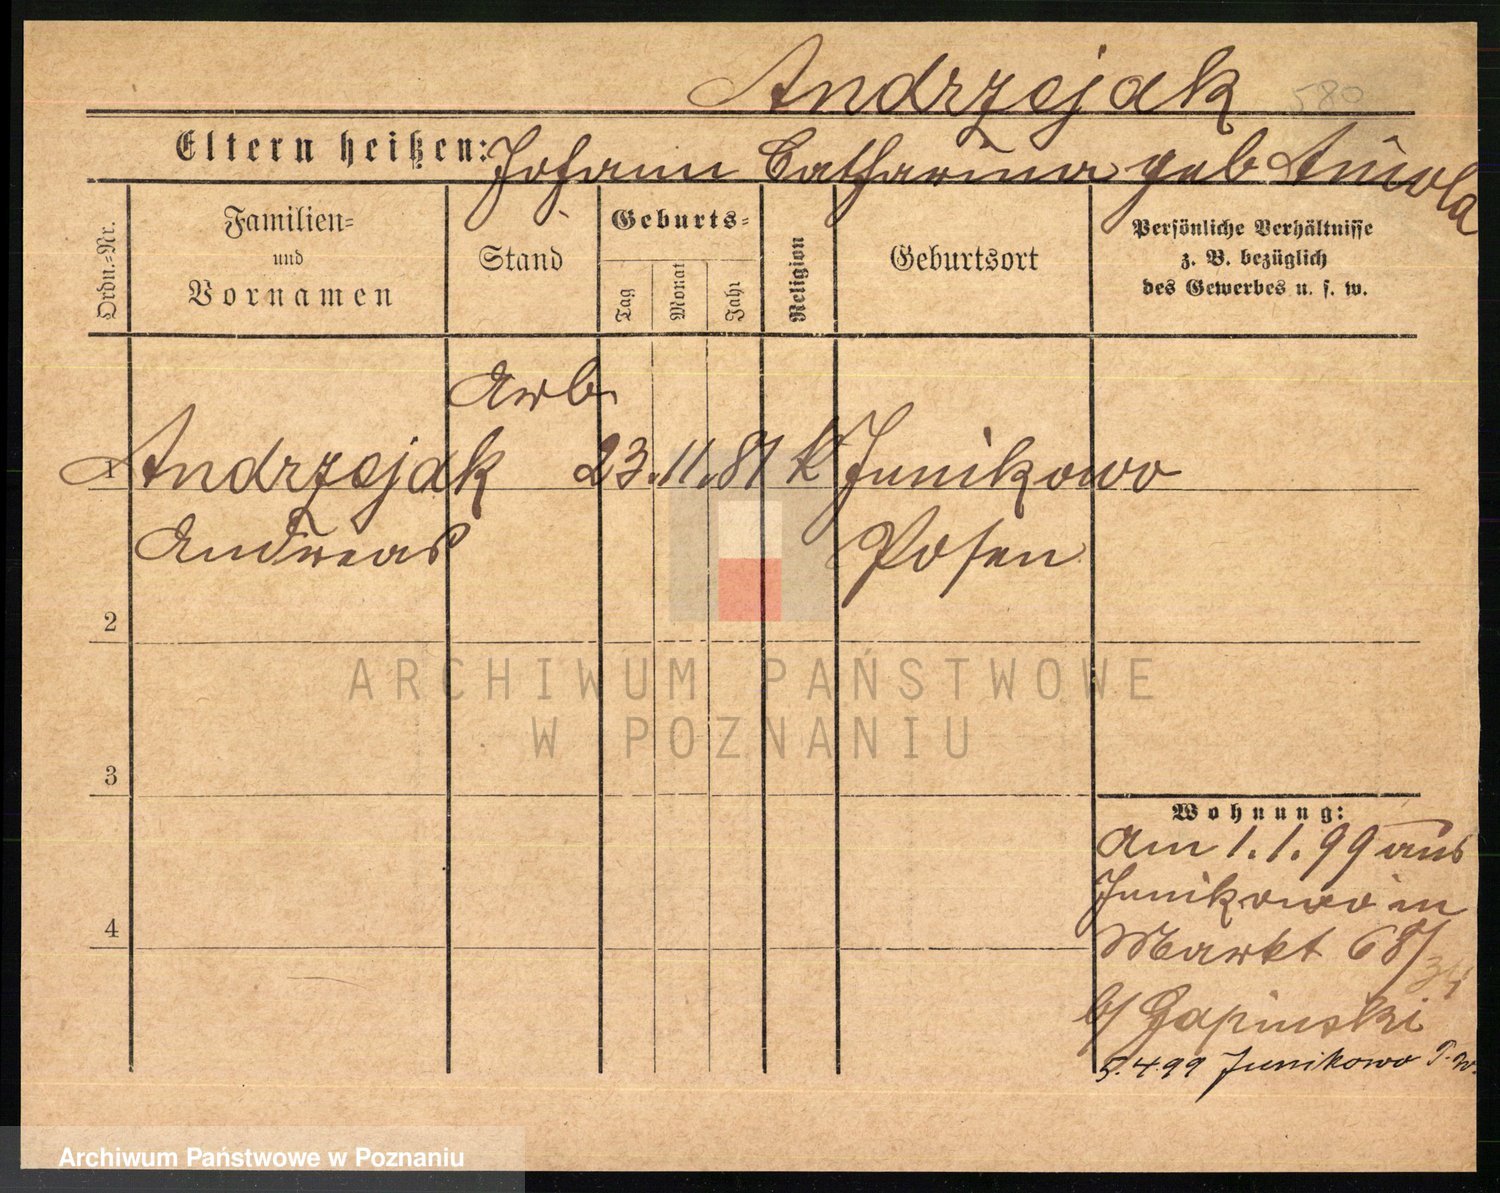 Andrzejak 580
Eltern heißen: Johann Catharina geb
Ordn.-Nr.
Familien-
und
Vornamen
Stand
Geburts-
Tag
Monat
Jahr
Religion
Geburtsort
Persönliche Verhältnisse
z. B. bezüglich
des Gewerbes u. s. w.
Arb
1 Andrzejak 23. 11. 81 k Junikowo
Andreas Posen
2
ARCHIWUM PAŃSTWOWE
W POZNANIU
3
Wohnung:
am 1. 1. 99 aus
Junikowo in
4
Markt 68/
34
b/ Gapinski
5. 4 99 Junikowo P. W.
Archiwum Państwowe w Poznaniu